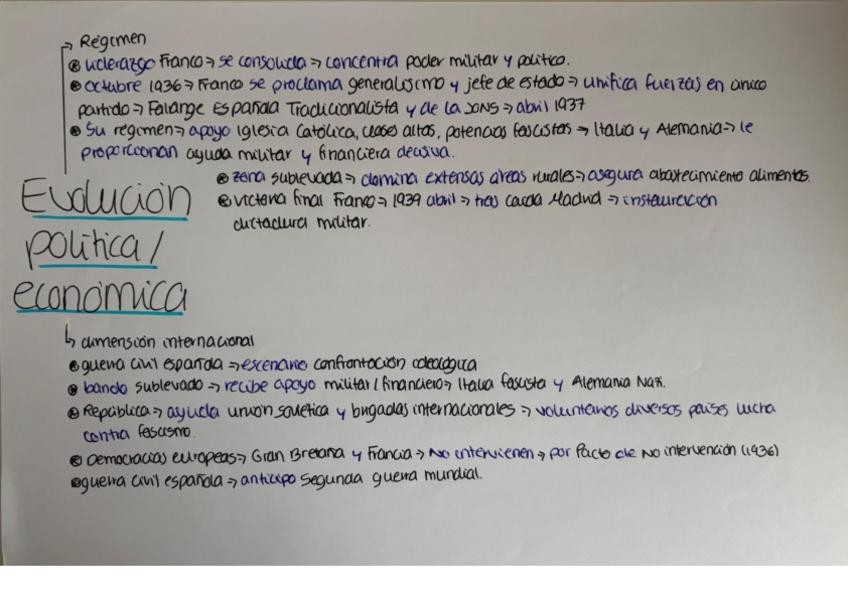 → Régimen
● Liderazgo Franco → se consolida → concentra poder militar y político.
● Octubre 1936 → Franco se proclama generalísimo y jefe de estado → unifica fuerzas en único
partido → Falange Española Tradicionalista y de la JONS → abril 1937
● Su régimen → apoyo Iglesia Católica, clases altas, potencias fascistas → Italia y Alemania → le
proporcionan ayuda militar y financiera decisiva.
● zona sublevada → domina extensas áreas rurales → asegura abastecimiento alimentos.
● victoria final Franco → 1939 abril → tras caída Madrid → instauración
dictadura militar.
Evolución
política/
económica
↳ dimensión internacional
● guerra civil española → escenario confrontación ideológica
● bando sublevado → recibe apoyo militar/financiero → Italia fascista y Alemania Nazi.
● República → ayuda unión soviética y brigadas internacionales → voluntarios diversos países lucha
contra fascismo.
● Democracias europeas → Gran Bretaña y Francia → No intervienen → por Pacto de No intervención (1936)
● guerra civil española → anticipo Segunda guerra mundial.